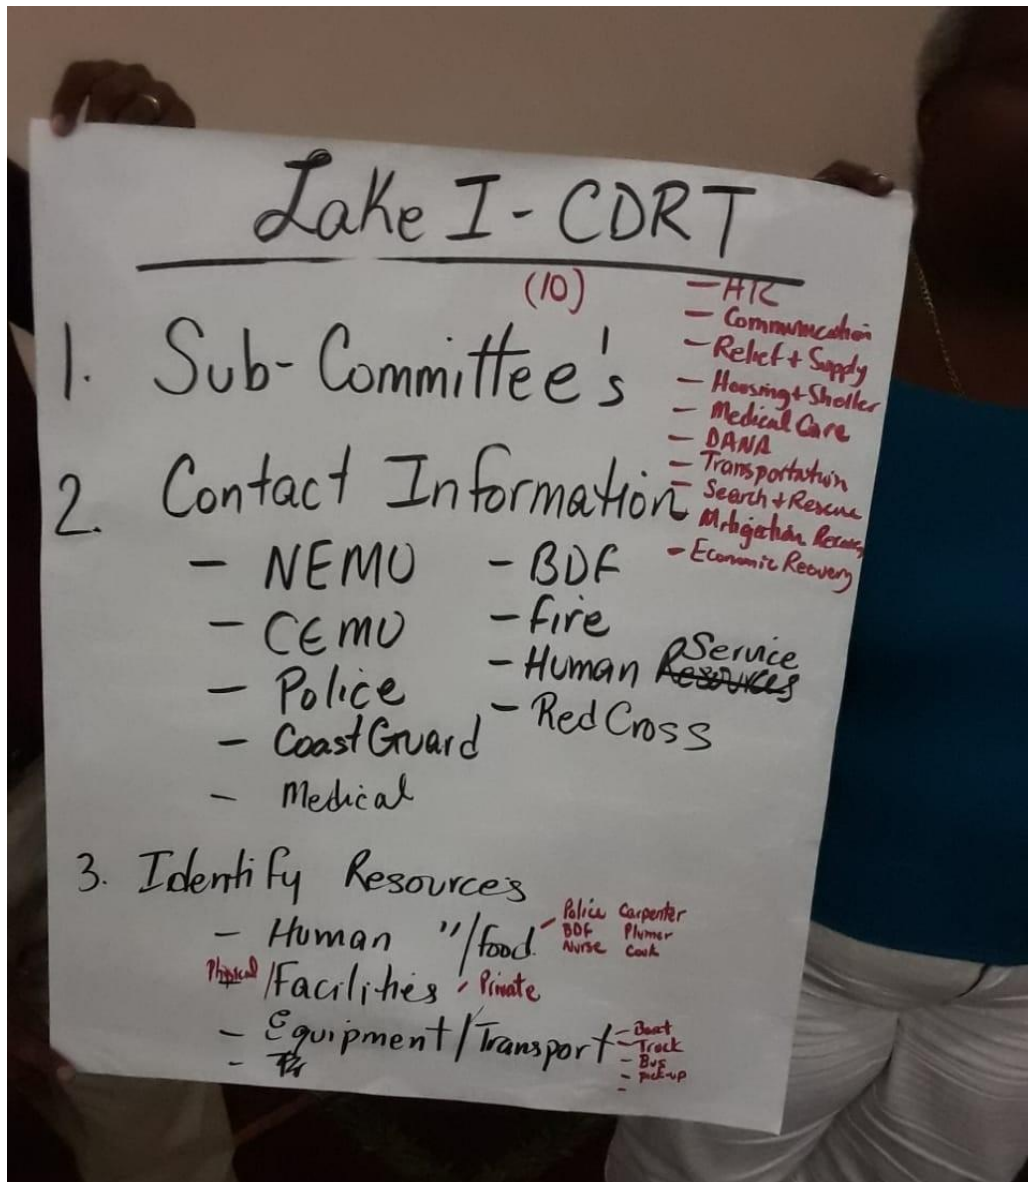 Lake I - CDRT
(10)
1. Sub-Committee's
- HTC
- Communication
- Relief + Supply
- Housing + Shelter
- Medical Care
- DANA
- Transportation
- Search + Rescue
Mitigation
- Economic Recovery
2. Contact Information
- NEMO
- CEMO
- Police
- Coast Guard
- Medical
- BDF
- Fire
- Human Service
- Red Cross
3. Identify Resources
- Human "/food.
Police Carpenter
BDF Plumer
Nurse Cook
Physical /Facilities / Private
- Equipment/Transport
- Boat
- Truck
- Bus
- pick-up
-
-